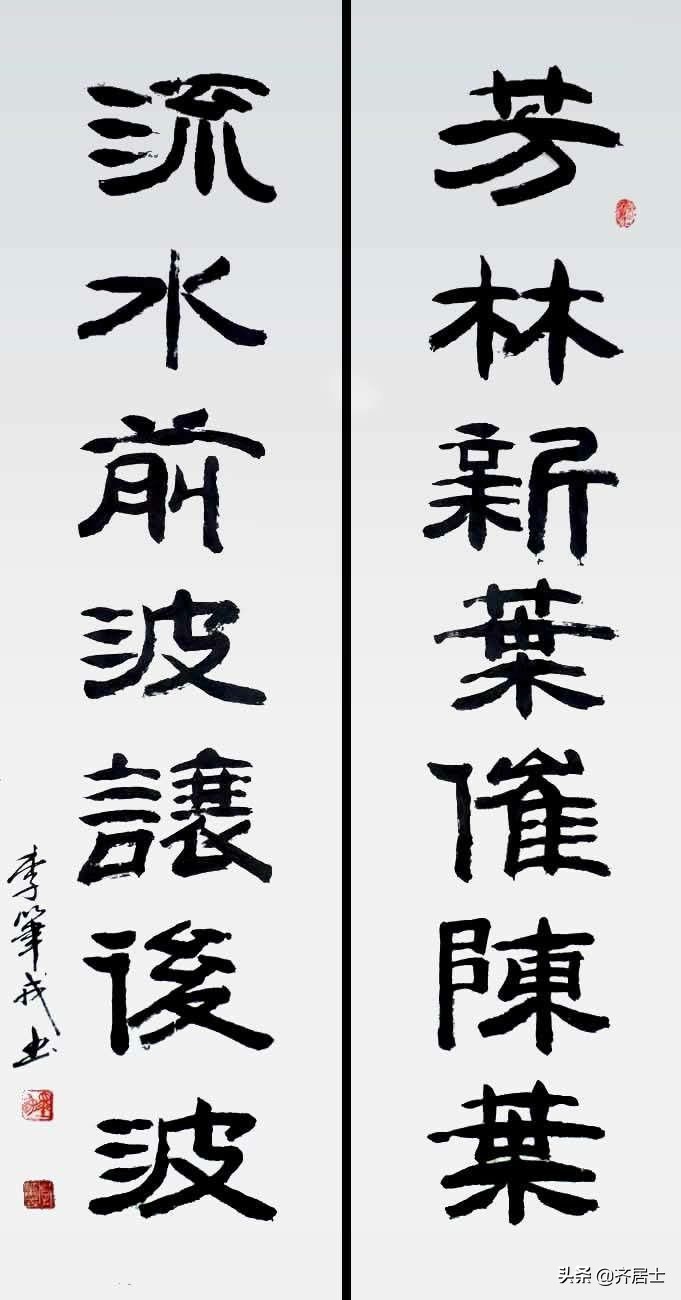 芳林新葉催陳葉
流水前波讓後波
李筆戎书
头条 @齐居士